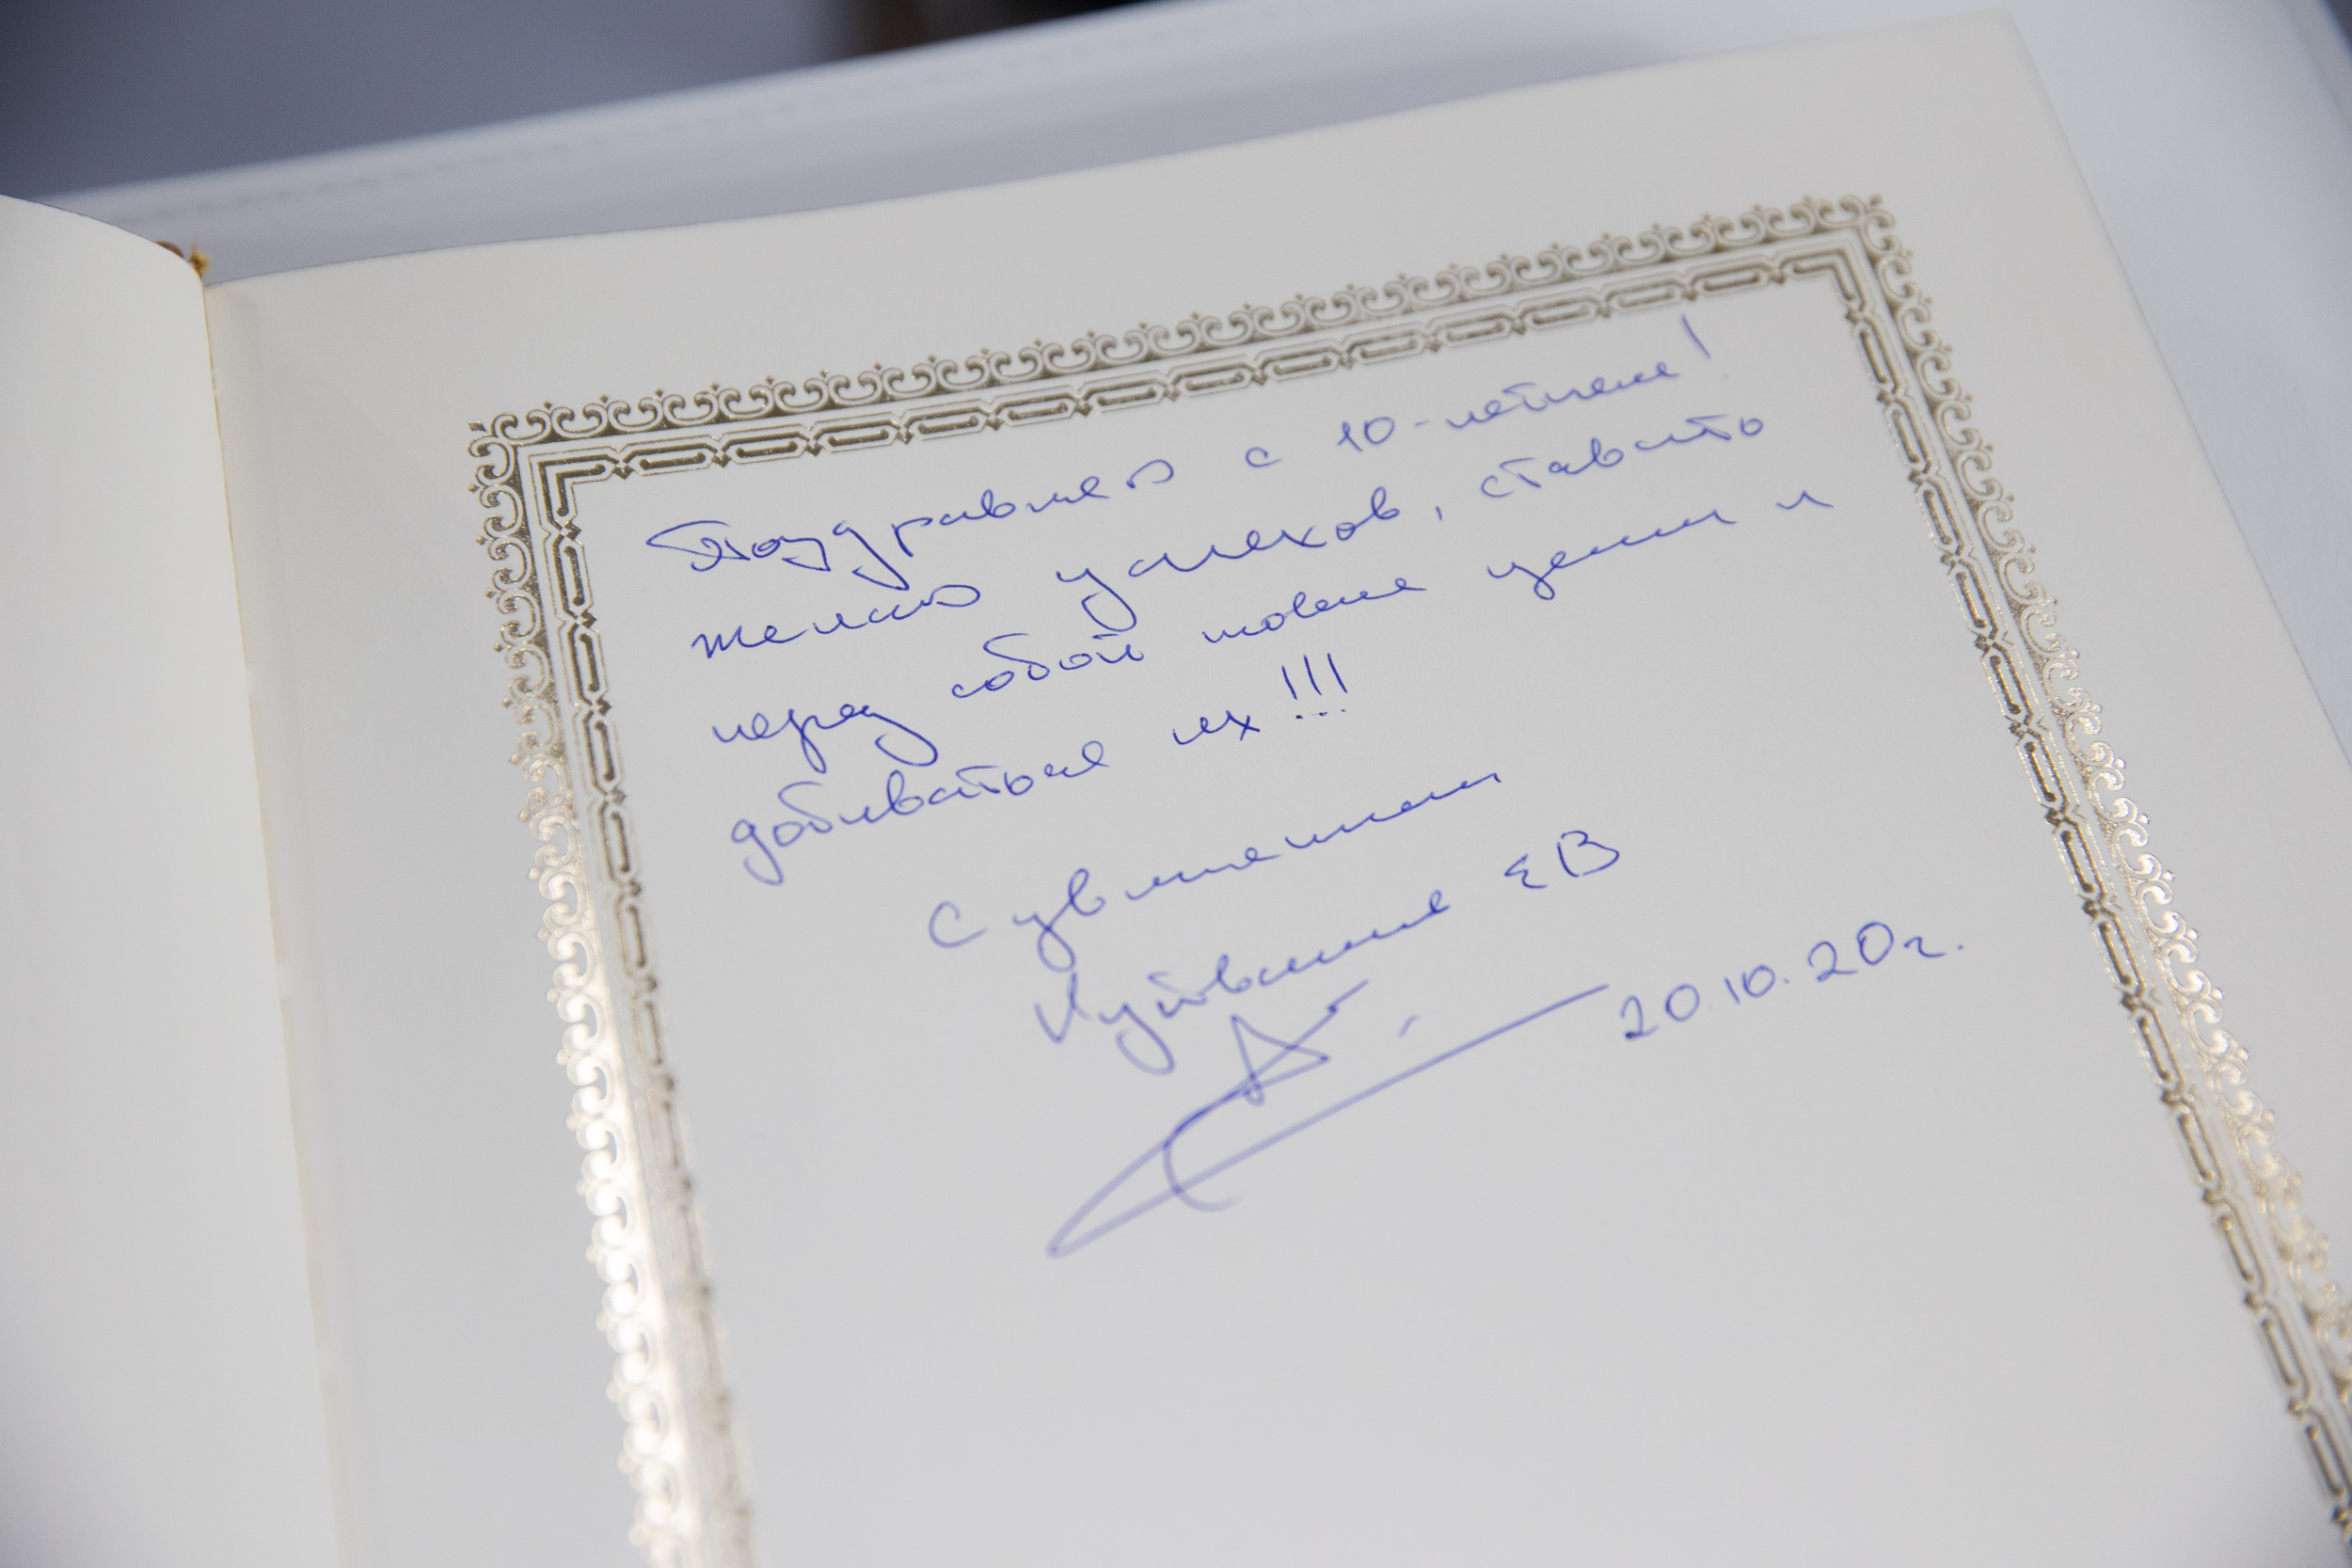 Поздравляю с 10-летием!
желаю успехов, ставить
перед собой новые цели и
добиваться их!!!
С уважением
Куйвашев ЕВ
20.10.20г.